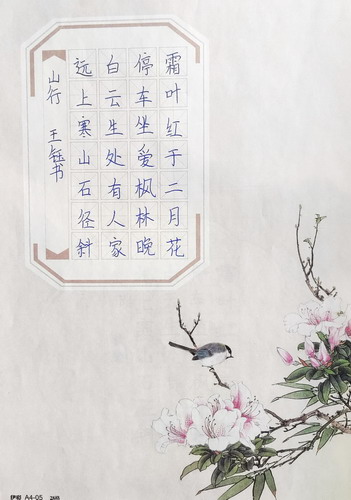 山行 王钰书
远上寒山石径斜
白云生处有人家
停车坐爱枫林晚
霜叶红于二月花
A4-05 28格